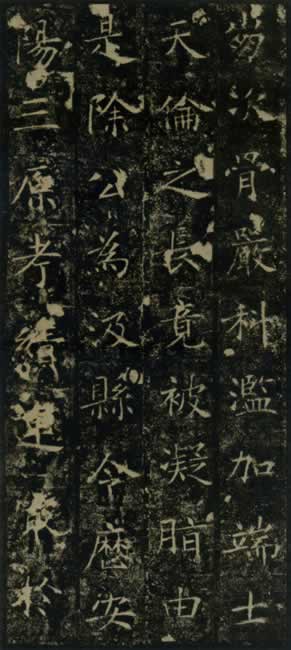 次骨嚴科濫加端士
天倫之長竟被凝脂由
是除公為汲縣令歷安
陽三原考績連最於